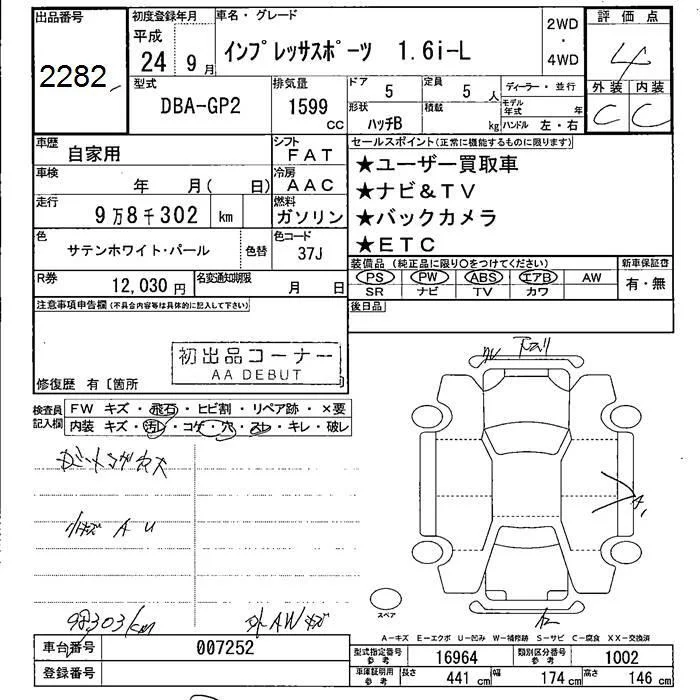 出品番号
2282
初度登録年月
平成
24 9月
車名・グレード
インプレッサスポーツ 1.6i-L
2WD
・
4WD
評価点
4
外装 内装
C C
型式
DBA-GP2
排気量
1599
CC
ドア 5
定員 5 人
形状 ハッチB
積載 kg
ディーラー・並行
モデル年式 年
ハンドル 左・右
車歴 自家用
シフト FAT
車検 年 月( 日)
冷房 AAC
走行 9万8千302 km
燃料 ガソリン
色 サテンホワイト・パール
色替
色コード 37J
R券 12,030 円
名変通知期限 月 日
セールスポイント(正常に機能するものに限ります)
★ユーザー買取車
★ナビ&TV
★バックカメラ
★ETC
装備品(純正品に限り○をつけてください)
PS PW ABS エアB AW
SR ナビ TV カワ
新車保証書
有・無
後日品
注意事項申告欄(不具合内容等は具体的に記入して下さい)
初出品コーナー
AA DEBUT
修復歴 有〔箇所 〕
検査員記入欄
FW キズ・飛石・ヒビ割・リペア跡・×要
内装 キズ・汚れ・コゲ・穴・スレ・キレ・破レ
小キズ A U
98303km
外AWキズ
スペア
A-キズ E-エクボ U-凹み W-補修跡 S-サビ C-腐食 XX-交換済
車台番号 007252
登録番号
型式指定番号 参考 16964
類別区分番号 参考 1002
車庫証明用 参考 長さ 441 cm 幅 174 cm 高さ 146 cm